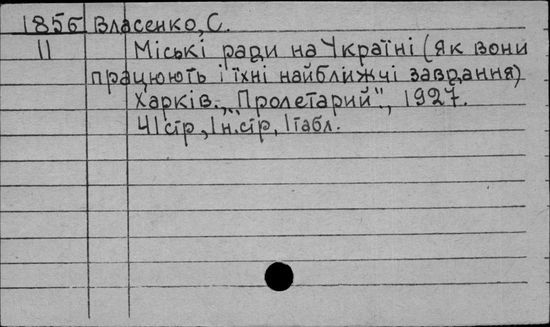 1856 Власенко, С.
II Міські ради на Україні (як вони
працюють і їхні найближчі завдання)
Харків. „Пролетарий", 1927.
41 стр, 1 н.стр, 1 табл.